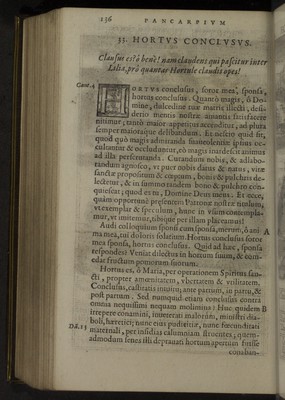 136 PANCARPIVM
33. HORTVS CONCLVSVS.
Clausus es! ô benè! nam claudens qui pascitur inter
Lilia, prô quantas Hortule claudis opes!
Cant. 4
HORTVS conclusus, soror mea, sponsa,
hortus conclusus. Quantò magis, ô Do-
mine, dulcedine tuæ mortis illecti, desi-
derio mentis nostræ
nitimur, tantò maior appetitus accenditur, ad plura
semper maioraque delibandum. Ex nostro quid sit,
quod quò magis admiranda
cultantur & occluduntur, eò magis
ad illa perscrutanda. Cutandum nobis, & adlabo-
randum agnosco, vt puer nobis datus & natus, vitæ
sanctæ proposito & bonis & pulchris de-
lectetur, & in summo tandem bono & pulchro con-
quiescat; quod extra Domine Deus meus. Et ecce,
quàm opportunè præsentem Patronæ nostræ
vt exemplar & speculum, hunc in vsum contemple-
mur, vt imitemur, tibique per illam placeamus!
Audi colloquium sponsi cum sponsa, mœrens, ô ani- A
ma mea, tui doloris solatium. Hortus conclusus soror
mea sponsa, hortus conclusus. Quid ad hæc, sponsa
respondes? Veniat dilectus in hortum suum, & com-
edat fructum pomorum suorum.
Hortus es, ô Maria, per operationem Spiritus san-
cti, propter amœnitatem, vbertatem & vtilitatem.
Conclusus, castitatis intuitu, ante partum, in partu, &
post partum. Sed numquid etiam conclusus contra
omnia nequissimi nequam molimina? Huc quidem B
irrepere conamini, innerecati malorum, ministri dia-
boli, hæretici; nunc eius pudicitiæ, nunc fœcunditati
maternali, per insidias calumniam struentes; quem-
Dā. 13
admodum senes illi deprauati hortum apertum fuisse
conaban-